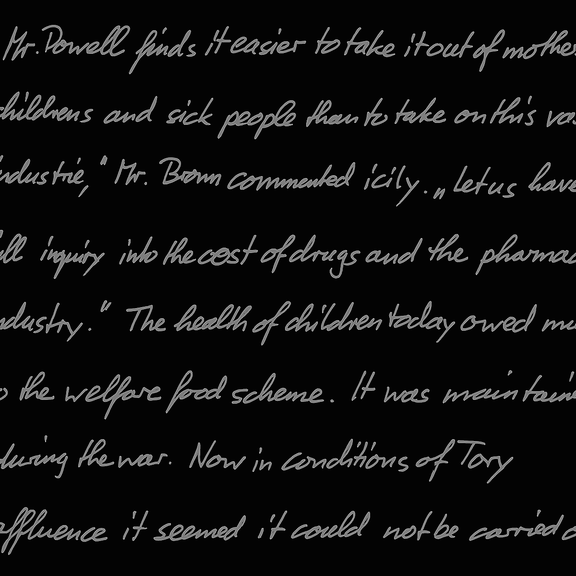 Mr. Powell finds it easier to take it out of mothe
childrens and sick people than to take on this va
industrie," Mr. Brown commented icily. „let us have
ull inquiry into the cost of drugs and the pharmac
ndustry." The health of children today owed mu
o the welfare food scheme. It was maintaine
during the war. Now in conditions of Tory
affluence it seemed it could not be carried o